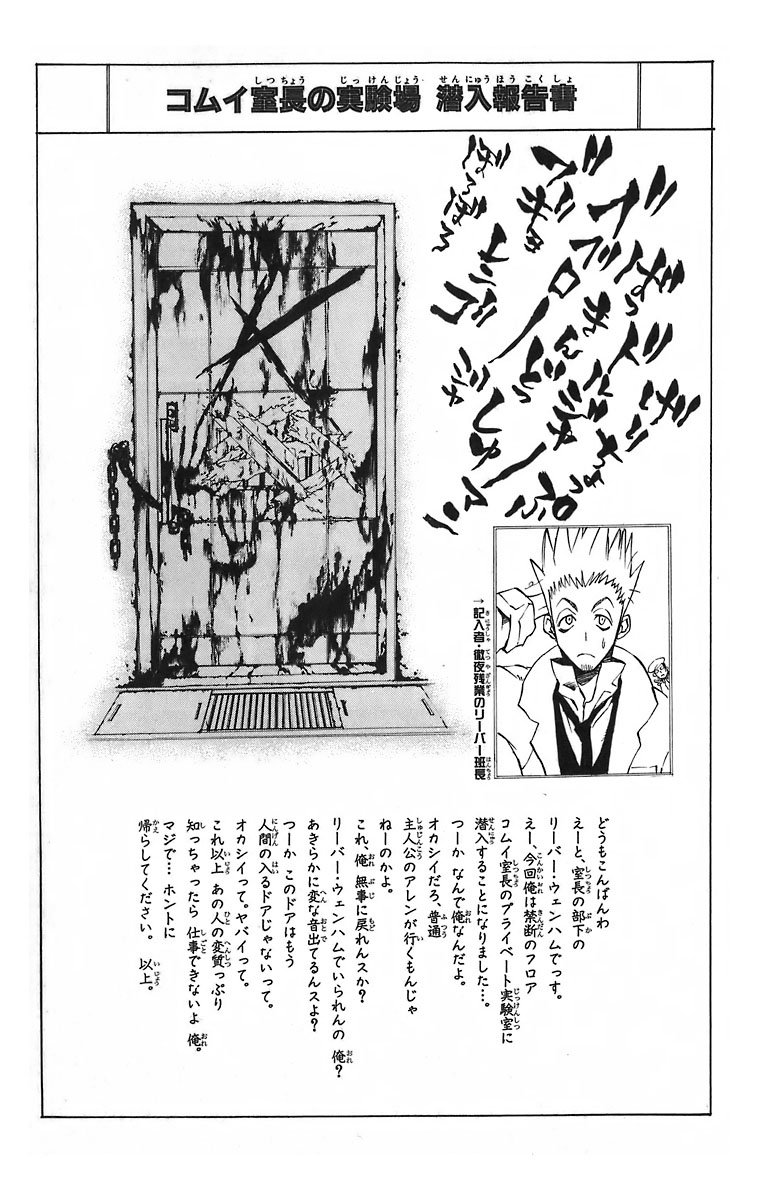 コムイ室長の実験場 潜入報告書
→記入者・徹夜残業のリーバー班長
どうもこんばんわ
えーと、室長の部下の
リーバー・ウェンハムでっす。
えー、今回俺は禁断のフロア
コムイ室長のプライベート実験室に
潜入することになりました…。
つーか なんで俺なんだよ。
オカシイだろ、普通
主人公のアレンが行くもんじゃ
ねーのかよ。
これ、俺 無事に戻れんスか?
リーバー・ウェンハムでいられんの 俺?
あきらかに変な音出てるんスよ?
つーか このドアはもう
人間の入るドアじゃないって。
オカシイって。ヤバイって。
これ以上 あの人の変質っぷり
知っちゃったら 仕事できないよ 俺。
マジで… ホントに
帰らしてください。 以上。